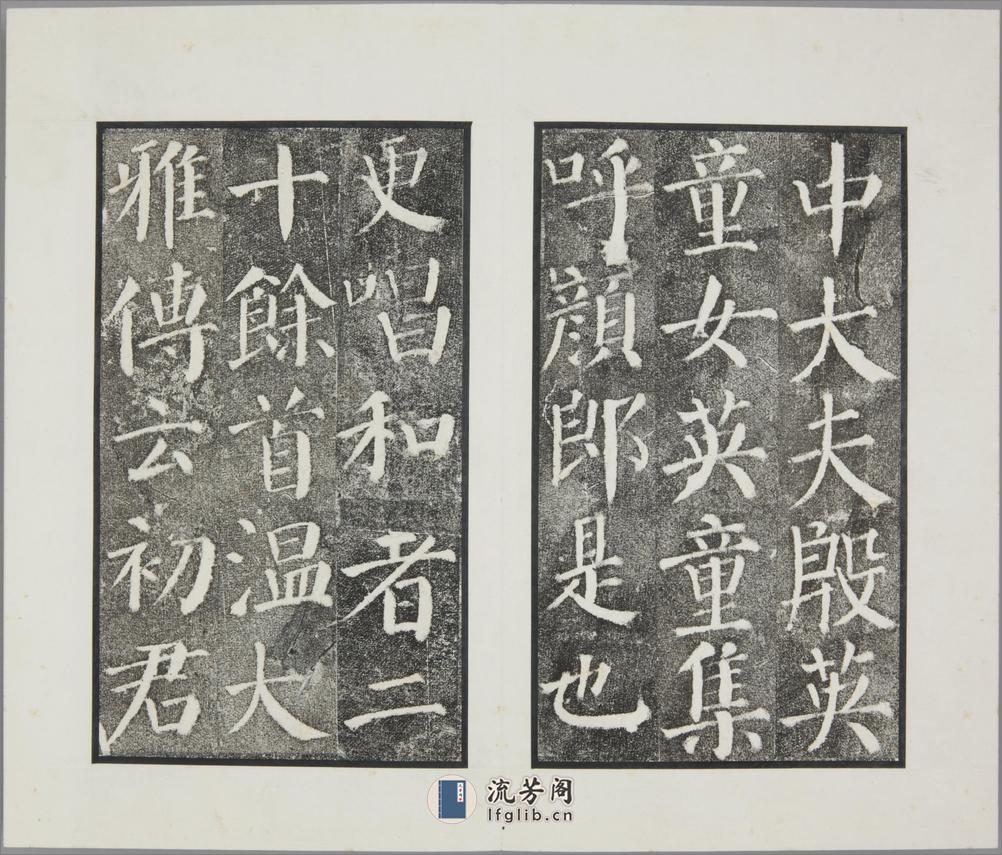 中大夫殷英
童女英童集
呼顔郎是也
更唱和者二
十餘首温大
雅傳云初君
流芳阁
lfglib.cn